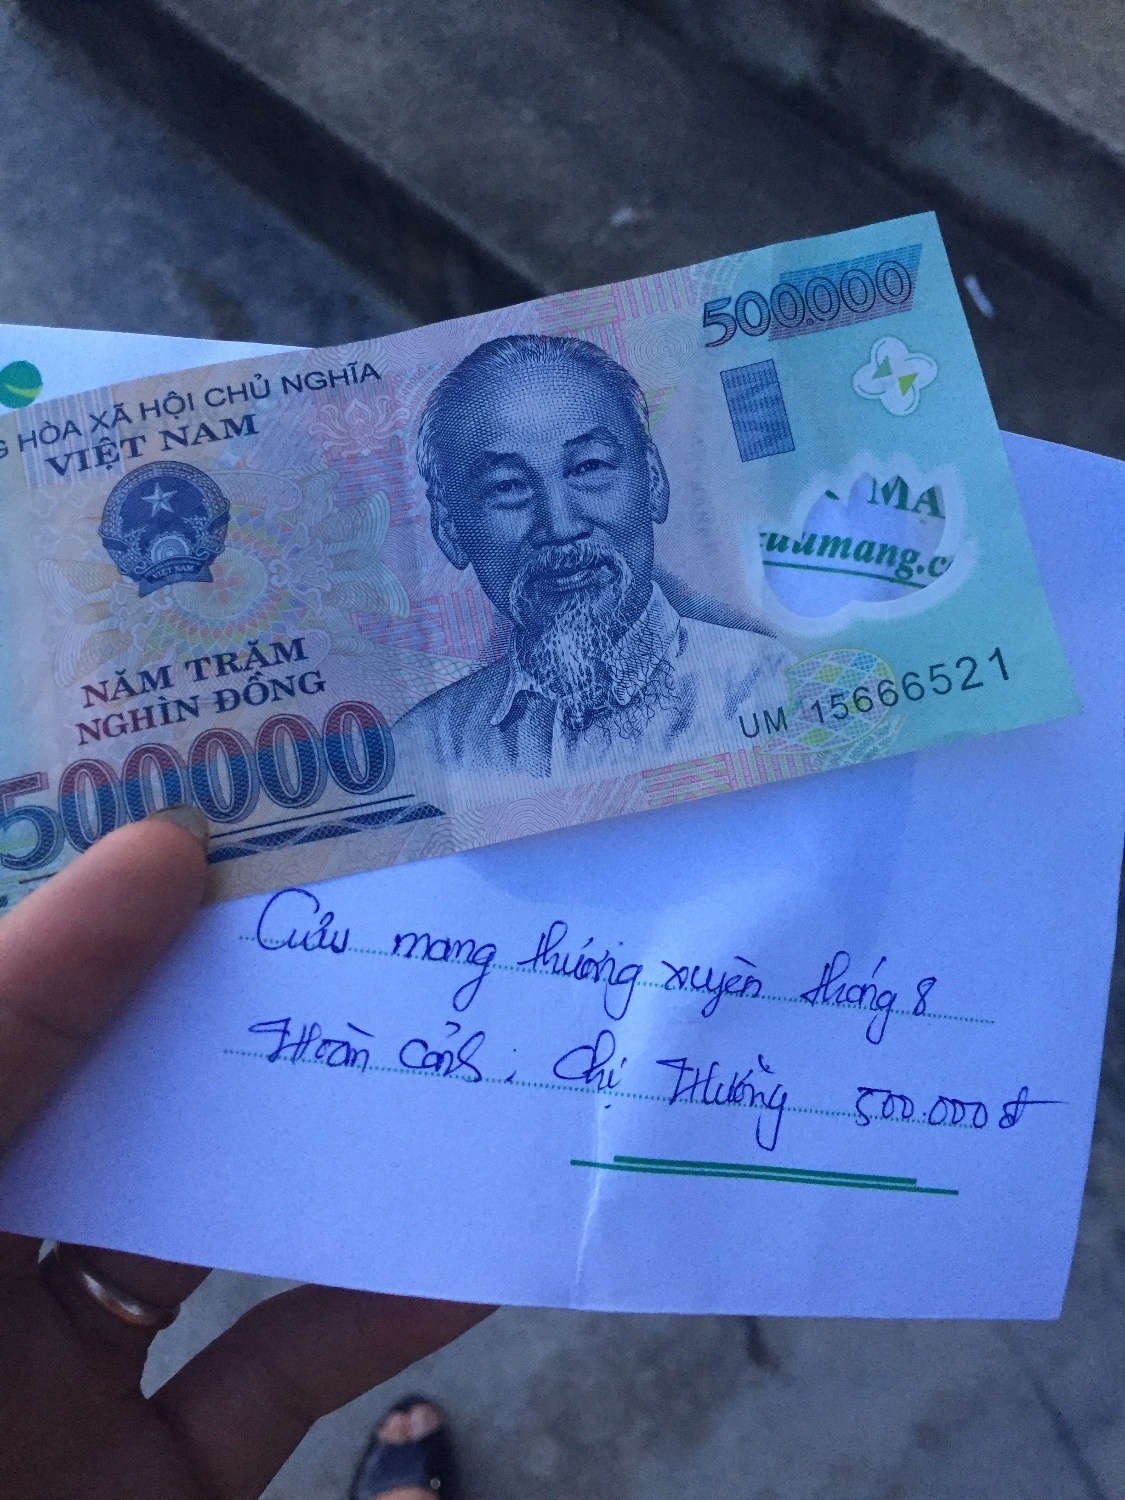 G HÒA XÃ HỘI CHỦ NGHĨA
VIỆT NAM
500.000
VIỆT NAM
MẠ
cuumang.c
NĂM TRĂM
NGHÌN ĐỒNG
500000
UM 15666521
Cưu mang thường xuyên tháng 8
Hoàn cảnh: Chị Hường 500.000đ